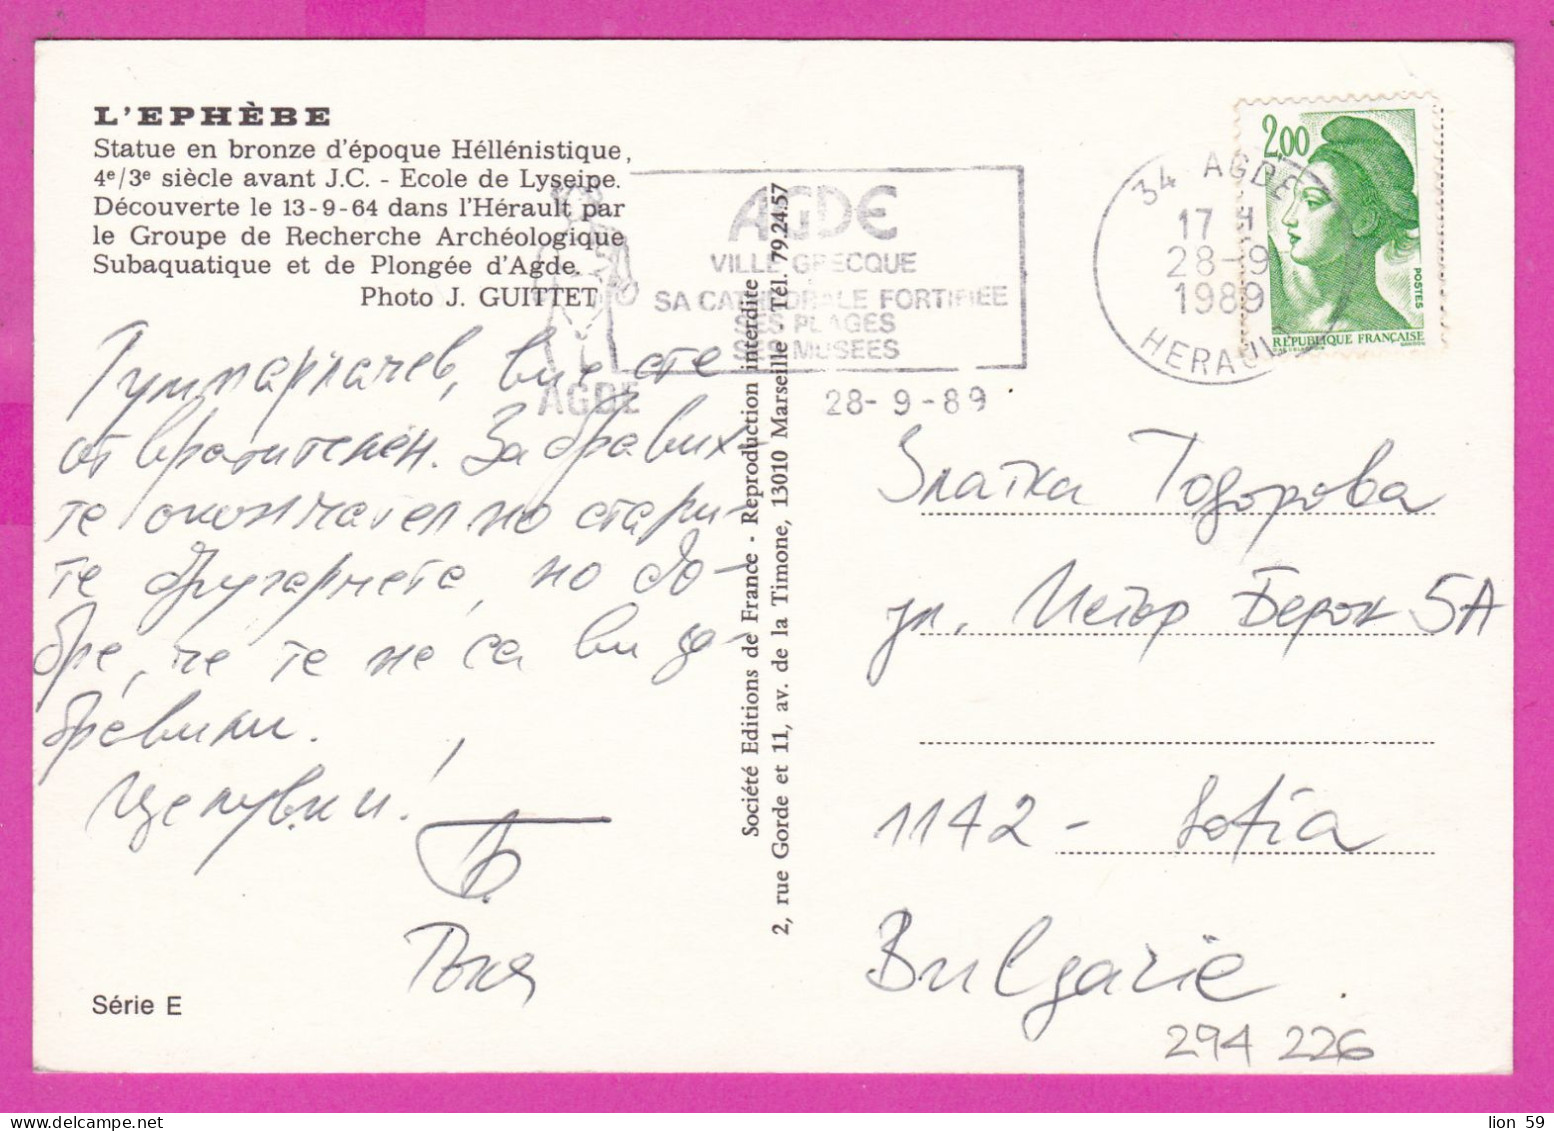 L'EPHÈBE
Statue en bronze d'époque Héllénistique,
4e/3e siècle avant J.C. - Ecole de Lyseipe.
Découverte le 13-9-64 dans l'Hérault par
le Groupe de Recherche Archéologique
Subaquatique et de Plongée d'Agde.
Photo J. GUITTET
AGDE
VILLE GRECQUE
SA CATHEDRALE FORTIFIEE
SES PLAGES
SES MUSEES
AGDE
28-9-89
34 AGDE
17 H
28-9
1989
HERAULT
2,00
POSTES
RÉPUBLIQUE FRANÇAISE
вие сте
отвратителен. Забравих-
те окончателно стари-
те другарчета, но до-
бре, че те не са ви за-
бравили.
Целувки!
Série E
Société Editions de France - Reproduction interdite
2, rue Gorde et 11, av. de la Timone, 13010 Marseille - Tél. 79.24.57
Златка Тодорова
ул. Петър Берон 5А
1142 - Sofia
Bulgarie
294 226
lion 59